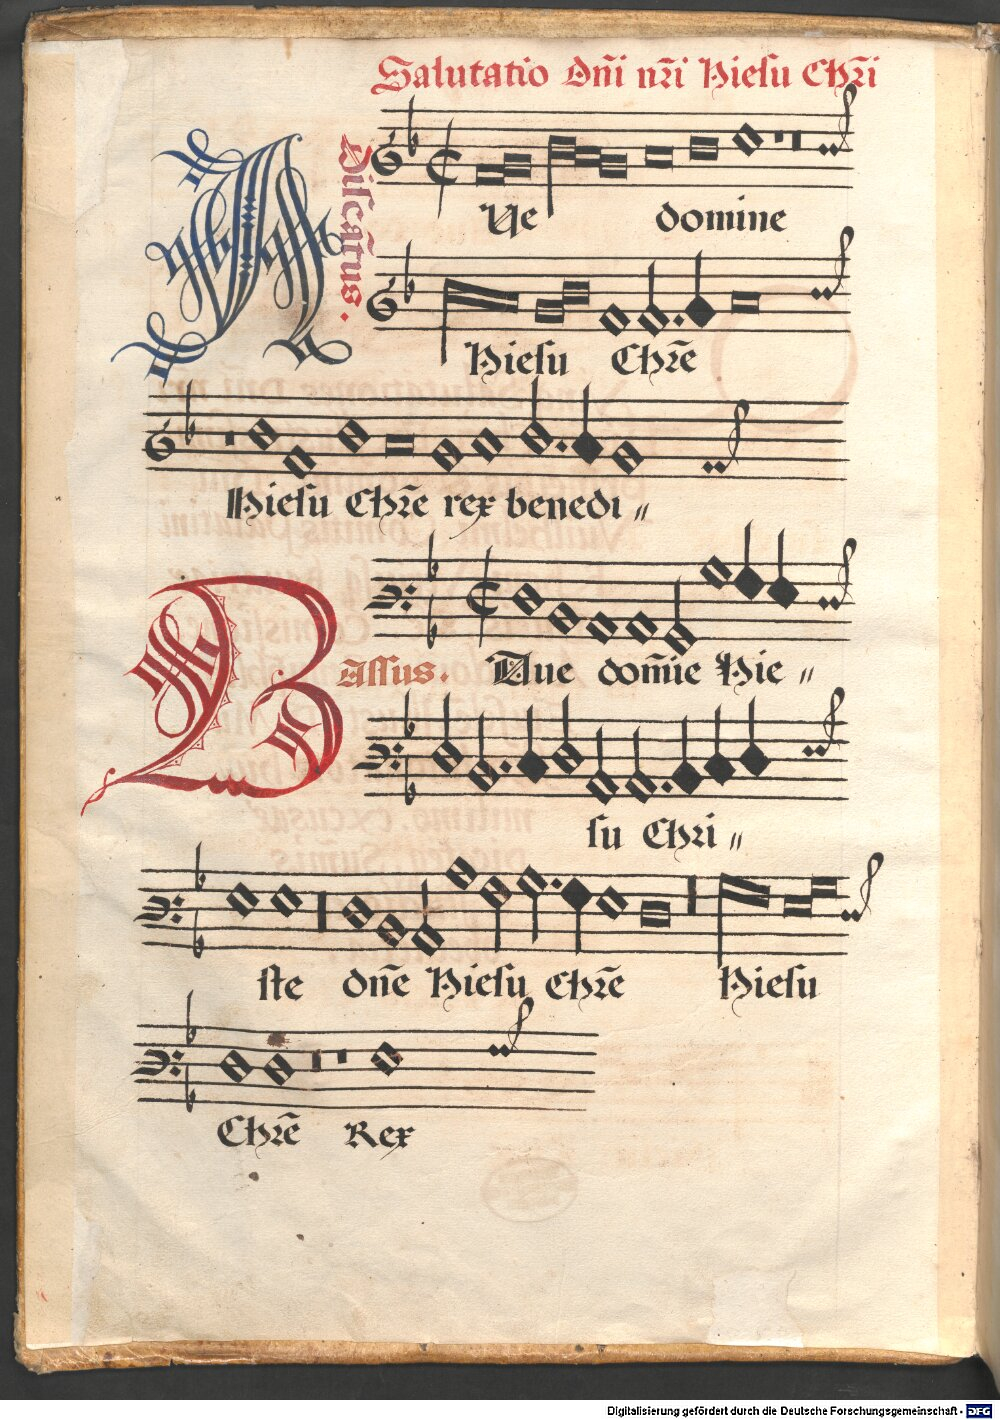 Salutatio Dn̄i nr̄i Hiesu Chr̄i
Discātus.
Ave domine
Hiesu Chr̄e
Hiesu Chr̄e rex benedi〃
Bassus. Aue dom̄ie Hie〃
su Chri〃
ste dn̄e Hiesu Chr̄e Hiesu
Chr̄e Rex
Digitalisierung gefördert durch die Deutsche Forschungsgemeinschaft - DFG